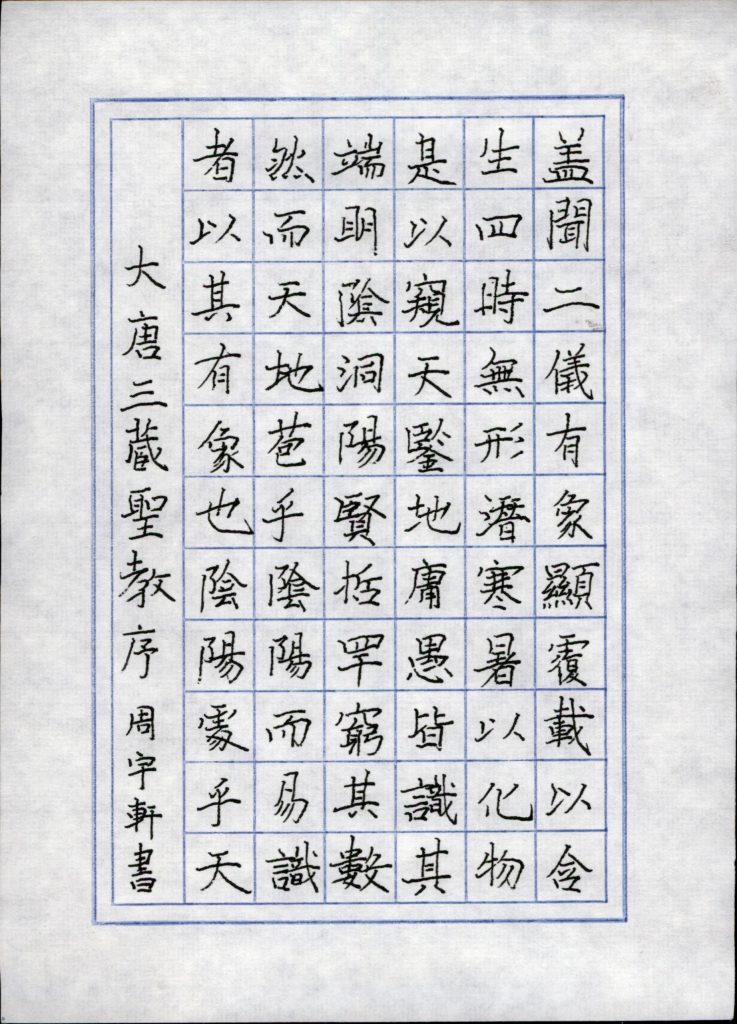 盖聞二儀有象顯覆載以含
生四時無形潛寒暑以化物
是以窺天鑒地庸愚皆識其
端明陰洞陽賢哲罕窮其數
然而天地苞乎陰陽而易識
者以其有象也陰陽處乎天
大唐三蔵聖教序 周宇軒書